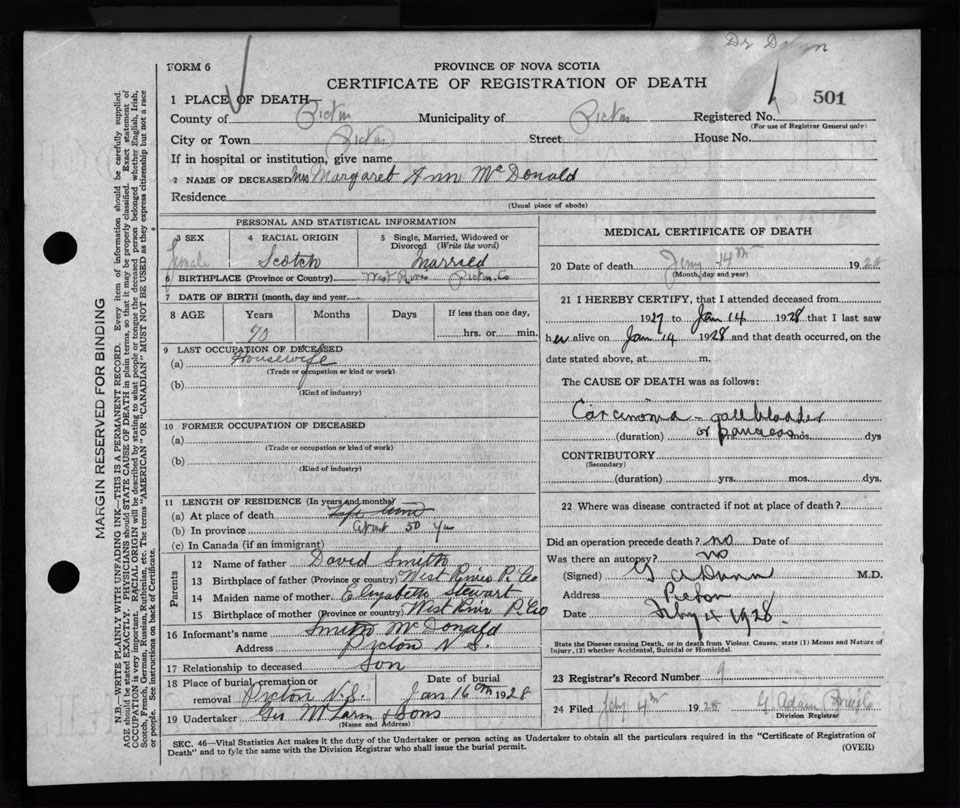 FORM 6
PROVINCE OF NOVA SCOTIA
CERTIFICATE OF REGISTRATION OF DEATH
501
1 PLACE OF DEATH
County of Pictou Municipality of Pictou Registered No.
(For use of Registrar General only)
City or Town Pictou Street House No.
If in hospital or institution, give name
2 NAME OF DECEASED Mrs Margaret Ann McDonald
Residence
(Usual place of abode)
PERSONAL AND STATISTICAL INFORMATION
3 SEX 4 RACIAL ORIGIN 5 Single, Married, Widowed or Divorced (Write the word)
Female Scotch Married
6 BIRTHPLACE (Province or Country) West River Pictou Co
7 DATE OF BIRTH (month, day and year)
8 AGE Years Months Days If less than one day,
70 hrs. or min.
9 LAST OCCUPATION OF DECEASED
(a) Housewife
(Trade or occupation or kind or work)
(b)
(Kind of industry)
10 FORMER OCCUPATION OF DECEASED
(a)
(Trade or occupation or kind of work)
(b)
(Kind of industry)
11 LENGTH OF RESIDENCE (In years and months)
(a) At place of death Life time
(b) In province about 50 yrs
(c) In Canada (if an immigrant)
Parents
12 Name of father David Smith
13 Birthplace of father (Province or country) West River P. Co
14 Maiden name of mother Elizabeth Stewart
15 Birthplace of mother (Province or country) West River P. Co
16 Informant's name Smith McDonald
Address Pictou N S.
17 Relationship to deceased Son
18 Place of burial, cremation or removal Pictou N.S. Date of burial Jan 16th 1928
19 Undertaker Geo & Sons
(Name and Address)
MEDICAL CERTIFICATE OF DEATH
20 Date of death 14th 1928
(Month, day and year)
21 I HEREBY CERTIFY, that I attended deceased from
1927 to Jan 14 1928 that I last saw
her alive on Jan 14 1928 and that death occurred, on the
date stated above, at m.
The CAUSE OF DEATH was as follows:
Carcinoma - gall bladder
or pancreas
(duration) yrs. mos. dys
CONTRIBUTORY
(Secondary)
(duration) yrs. mos. dys.
22 Where was disease contracted if not at place of death?
Did an operation precede death? no
Was there an autopsy? no
(Signed) G A Dunn M.D.
Address Pictou
Date Feby 4 1928.
State the Disease causing Death, or in death from Violent Causes, state (1) Means and Nature of
Injury, (2) whether Accidental, Suicidal or Homicidal.
23 Registrar's Record Number 9
24 Filed Feby 4th 1928 G. Adam
Division Registrar
SEC. 46—Vital Statistics Act makes it the duty of the Undertaker or person acting as Undertaker to obtain all the particulars required in the "Certificate of Registration of
Death" and to fyle the same with the Division Registrar who shall issue the burial permit.
(OVER)
MARGIN RESERVED FOR BINDING
N.B.—WRITE PLAINLY WITH UNFADING INK—THIS IS A PERMANENT RECORD. Every item of information should be carefully supplied.
AGE should be stated EXACTLY. PHYSICIANS should STATE CAUSE OF DEATH in plain terms, so that it may be properly classified. Exact statement of
OCCUPATION is very important. RACIAL ORIGIN will be described by stating to what people or tongue the deceased person belonged whether English, Irish,
Scotch, French, German, Russian, Ruthenian, etc. The terms "AMERICAN" OR "CANADIAN" MUST NOT BE USED as they express citizenship but not a race
or people. See instructions on back of Certificate.